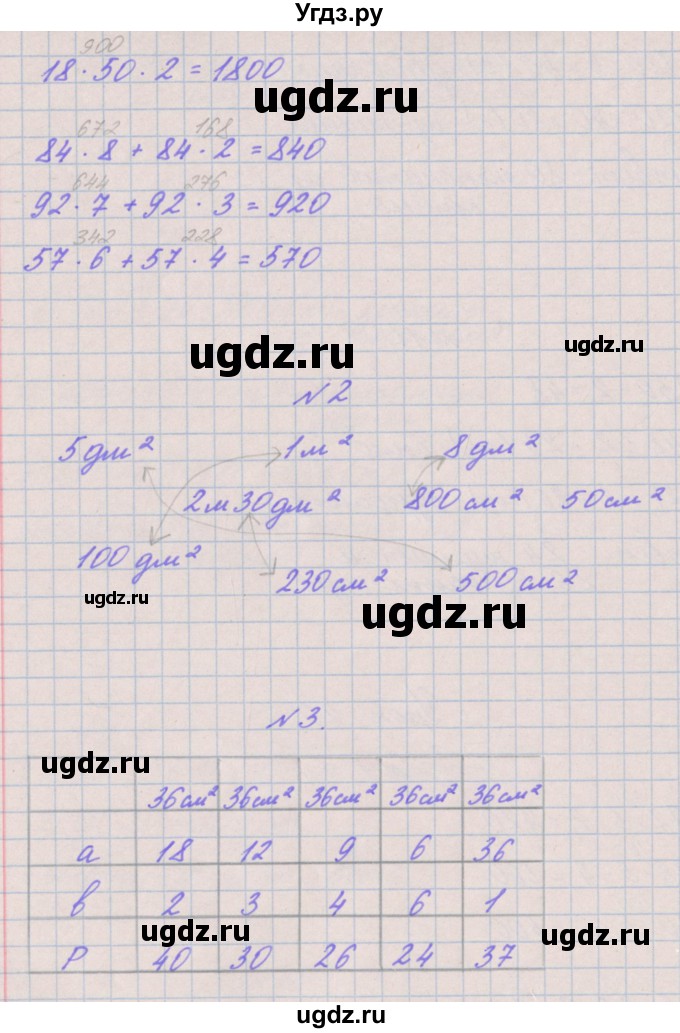 Угдз.ру
900
18 · 50 · 2 = 1800
ugdz.ru
672 168
84 · 8 + 84 · 2 = 840
644 276
92 · 7 + 92 · 3 = 920
342 228
57 · 6 + 57 · 4 = 570
ugdz.ru ugdz.ru
N2
5 дм² 1 м² 8 дм²
2 м 30 дм² 800 см² 50 см²
100 дм² 230 см² 500 см²
ugdz.ru ugdz.ru
N3.
ugdz.ru
36 см² 36 см² 36 см² 36 см² 36 см²
а 18 12 9 6 36
в 2 3 4 6 1
ugdz.ru ugdz.ru
Р 40 30 26 24 37
ugdz.ru